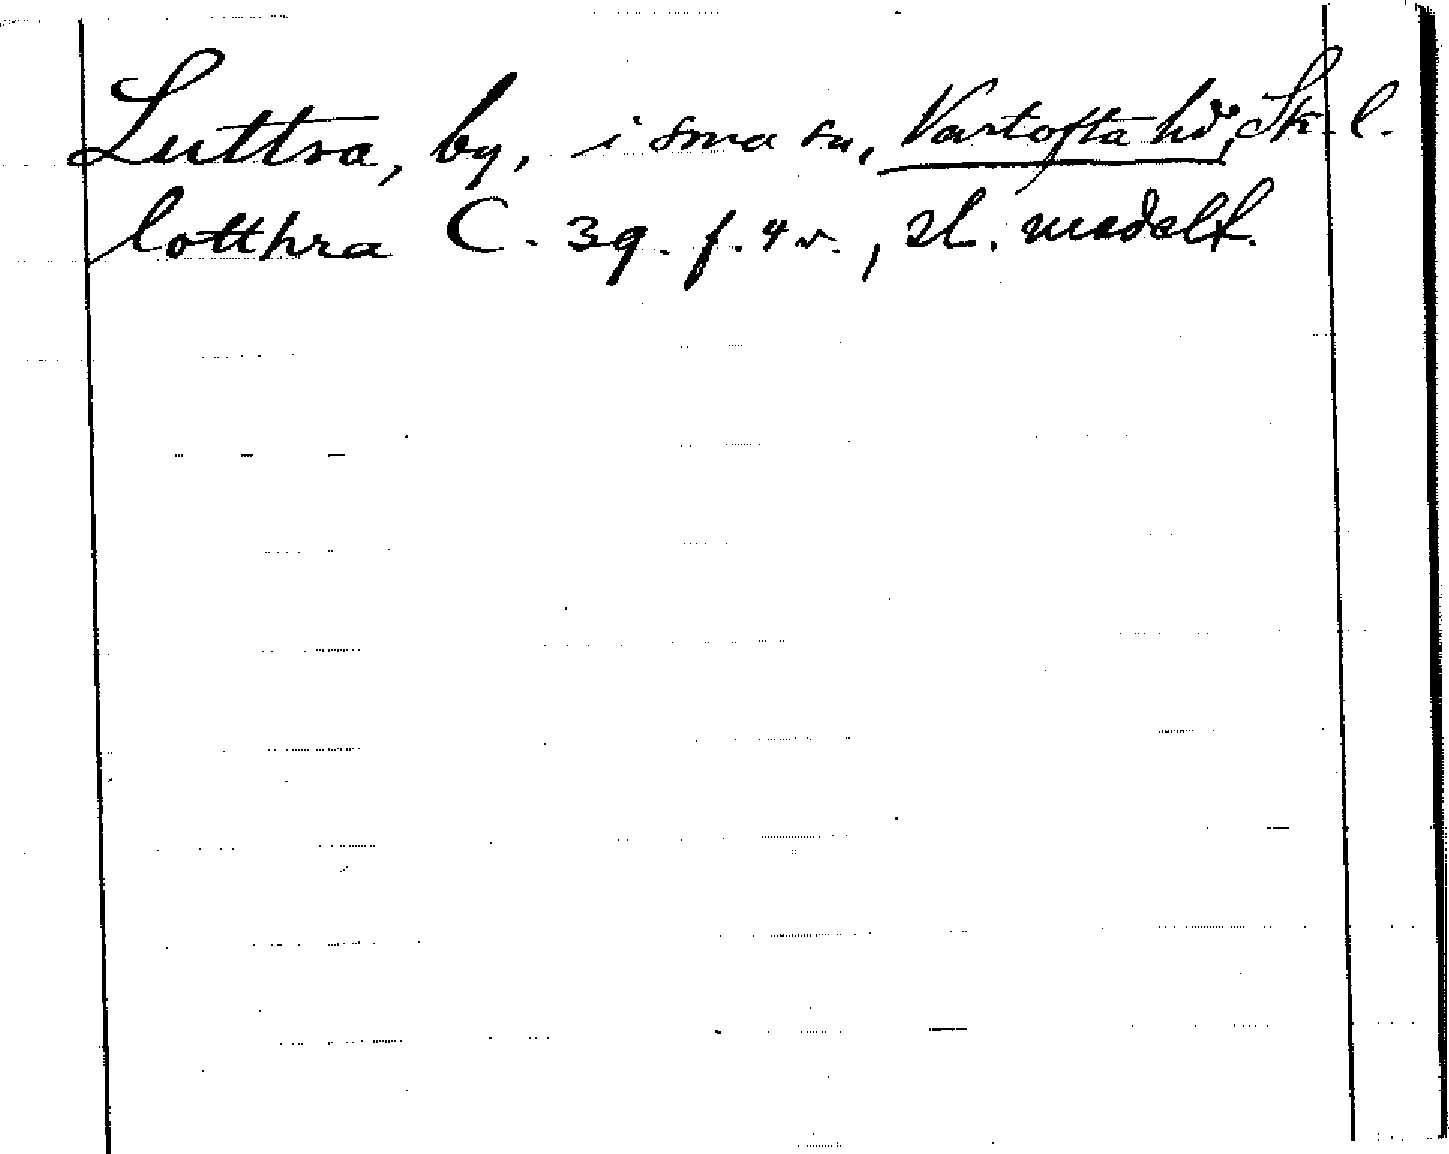 Luttra, by, i sma sn, Vartofta hd, Sk. l.
lotthra C. 39. f. 4 v.,